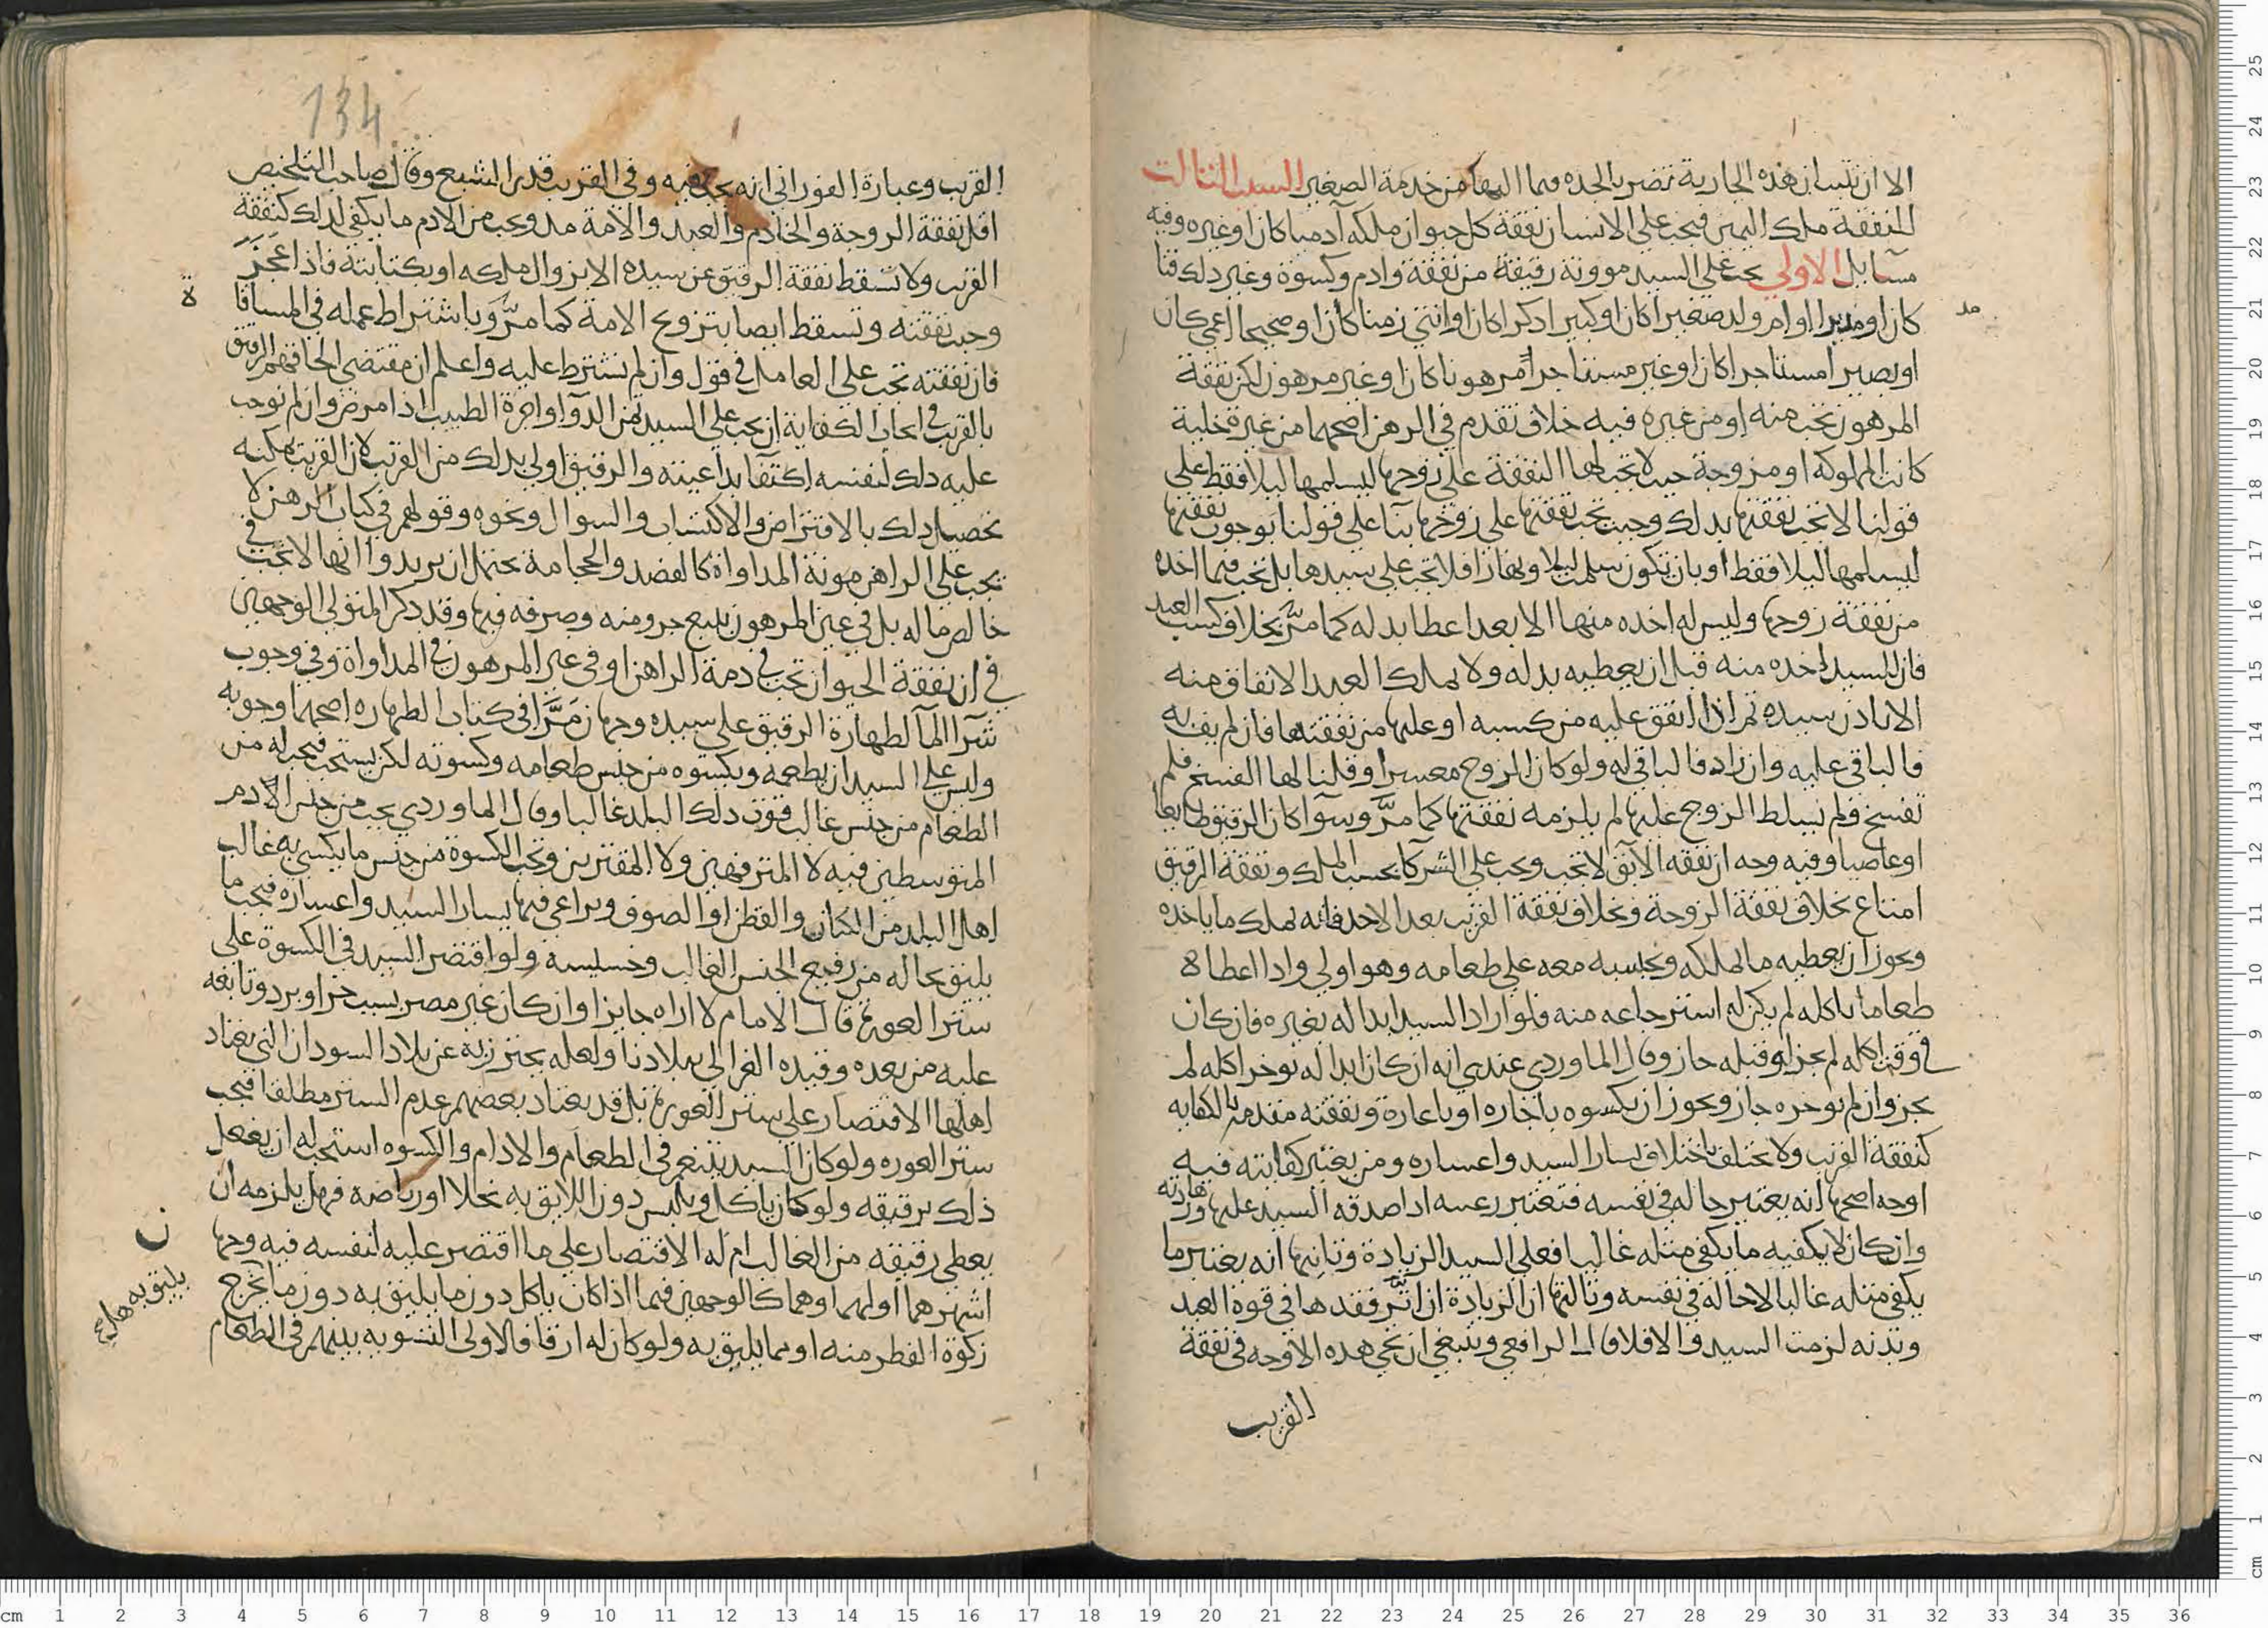 الا ان تتسان هذه الجارية تضر بالحده فما اليها من خدمة الصغير السبب الثالث
للنفقة ملك اليمين فيجب على الانسان نفقة كل حيوان ملكه آدميا كان او غيره وفيه
مسايل الاولي يجب على السيد موونة رقيقة من نفقة وادم وكسوة وغير دلك قنا
كان او مدبرا او ام ولد صغيرا كان او كبيرا دكرا كان او انثي زمنا كان او صحيحا اعمي كان
او بصيرا مستاجرا كان او غير مستاجرا مرهونا كان او غير مرهون لكن نفقة
المرهون تجب منه او من غيره فيه خلاف تقدم في الرهن اصحهما من غيره خلية
كانت المملوكة او مزوجة حيث لا تجب لها النفقة على زوجها ليسلمها ليلا فقط على
قولنا لا تجب نفقتها بدلك وحيث تجب نفقتها على زوجها بنا على قولنا بوجوب نفقتها
ليسلمها ليلا فقط او بان تكون سلمت ليلا ونهارا فلا تجب على سيدها بل تجب فيما اخده
من نفقة زوجها وليس له اخده منها الا بعد اعطا بدله كما مرّ بخلاف كسب العبد
فان للسيد اخده منه قبل ان يعطيه بدله ولا يملك العبد الانفاق منه
الا باذن سيده ثم اذا انفق عليه من كسبه او عليها من نفقتها فان لم يف به
فالباقي عليه وان زاد فالباقي له ولو كان الزوج معسرا وقلنا لها الفسخ فلم
تفسخ فلم يسلط الزوج عليها لم يلزمه نفقتها كما مرّ وسوآ كان الرقيق طايعا
او عاصيا وفيه وجه ان نفقه الآبق لا تجب وتجب على الشركا بحسب الملك ونفقة الرقيق
امتاع بخلاف نفقة الزوجة وبخلاف نفقة القريب بعد الاحد فانه يملك ما ياخده
ويجوز ان يعطيه ما لا يملكه ويجلسه معه على طعامه وهو اولي وادا اعطاه
طعاما ياكله لم يكن له استرجاعه منه فلو اراد السيد ابداله بغيره فان كان
في وقت اكله لم يجز او قبله جاز وقال الماوردي عندي انه ان كان ابداله يوخر اكله لم
يجز وان لم يوخره جاز ويجوز ان يكسوه باجاره او باعارة ونفقته مقدمه بالكفايه
كنفقة القريب ولا تختلف باختلاف يسار السيد واعساره ومن يعتبر كفايته فيه
اوجه اصحها انه يعتبر حاله في نفسه فتعتبر رعبته ادا صدقه السيد عليها وزهادته
وان كان لا يكفيه ما يكفي مثله غالبا فعلي السيد الزيادة وثانيها انه يعتبر ما
يكفي مثله غالبا لا حاله في نفسه وثالثها ان الزيادة ان اثّر فقدها في قوة العبد
وبدنه لزمت السيد والا فلا قال الرافعي وينبغي ان تجي هده الاوجه في نفقة
القريب
مد
134
القريب وعبارة الفوراني انه يجب فيه وفي القريب قدر الشبع وقال صاحب التلخيص
اقل نفقة الزوجة والخادم والعبد والامة مد ويجب من الادم ما يكفي لدلك كنفقة
القريب ولا تسقط نفقة الرقيق عن سيده الا بزوال ملكه او بكتابته فاذا عجز
وجبت نفقته وتسقط ايضا بتزوج الامة كما مرّ وباشتراط عمله في المساقا
ة
فان نفقته تجب على العامل في قول وان لم تشترط عليه واعلم ان مقتضي الحاقهم الرقيق
بالقريب في ايجاب الكفاية ان يجب على السيد ثمن الدوآ واجرة الطبيب اذا مرض وان لم نوجب
عليه دلك لنفسه اكتفآ بداعيته والرقيق اولي بدلك من القريب لان القريب يمكنه
تحصيل دلك بالاقتراض والاكتساب والسوال ونحوه وقولهم في كتاب الرهن لا
يجب على الراهن مونة المداواة كالفصد والحجامة يحتمل ان يريدوا انها لا تجب في
خالص ماله بل في عين المرهون ببيع جزو منه وصرفه فيها وقد دكر المتولي الوجهين
في ان نفقة الحيوان تجب في دمة الراهن او في عين المرهون في المداواة وفي وجوب
شرآ المآ لطهارة الرقيق على سيده وجهان مَرَّا في كتاب الطهاره اصحهما وجوبه
وليس على السيد ان يطعمه ويكسوه من جنس طعامه وكسوته لكن يستحب فيجب له من
الطعام من جنس غالب قوت دلك البلد غالبا وقال الماوردي يجب من جنس الادم
المتوسطين فيه لا المترفهين ولا المقترين وتجب الكسوة من جنس ما يكسي به غالب
اهل البلد من الكتان والقطن او الصوف ويراعي فيها يسار السيد واعساره فيجب ما
يليق بحاله من رفيع الجنس الغالب وخسيسه ولو اقتصر السيد في الكسوة على
ستر العورة قال الامام لا اراه جايزا وان كان غير مضر بسبب حر او برد وتابعه
عليه من بعده وقيده الغزالي ببلادنا ولعله يحترز به عن بلاد السودان التي يعتاد
اهلها الاقتصار على ستر العورة بل قد يعتاد بعضهم عدم الستر مطلقا فيجب
ستر العوره ولو كان السيد يتنعم في الطعام والادام والكسوه استحب له ان يفعل
ذلك برقيقه ولو كان ياكل ويلبس دون اللايق به بخلا او رياضه فهل يلزمه ان
يعطي رقيقه من الغالب ام له الاقتصار على ما اقتصر عليه لنفسه فيه وجها
ن
اشهرهما اولهما وهما كالوجهين فيما اذا كان ياكل دون ما يليق به دون ما يخرج
زكوة الفطر منه او مما يليق به ولو كان له ارقا فالاولي التسويه بينهم في الطعام
يليق به هل